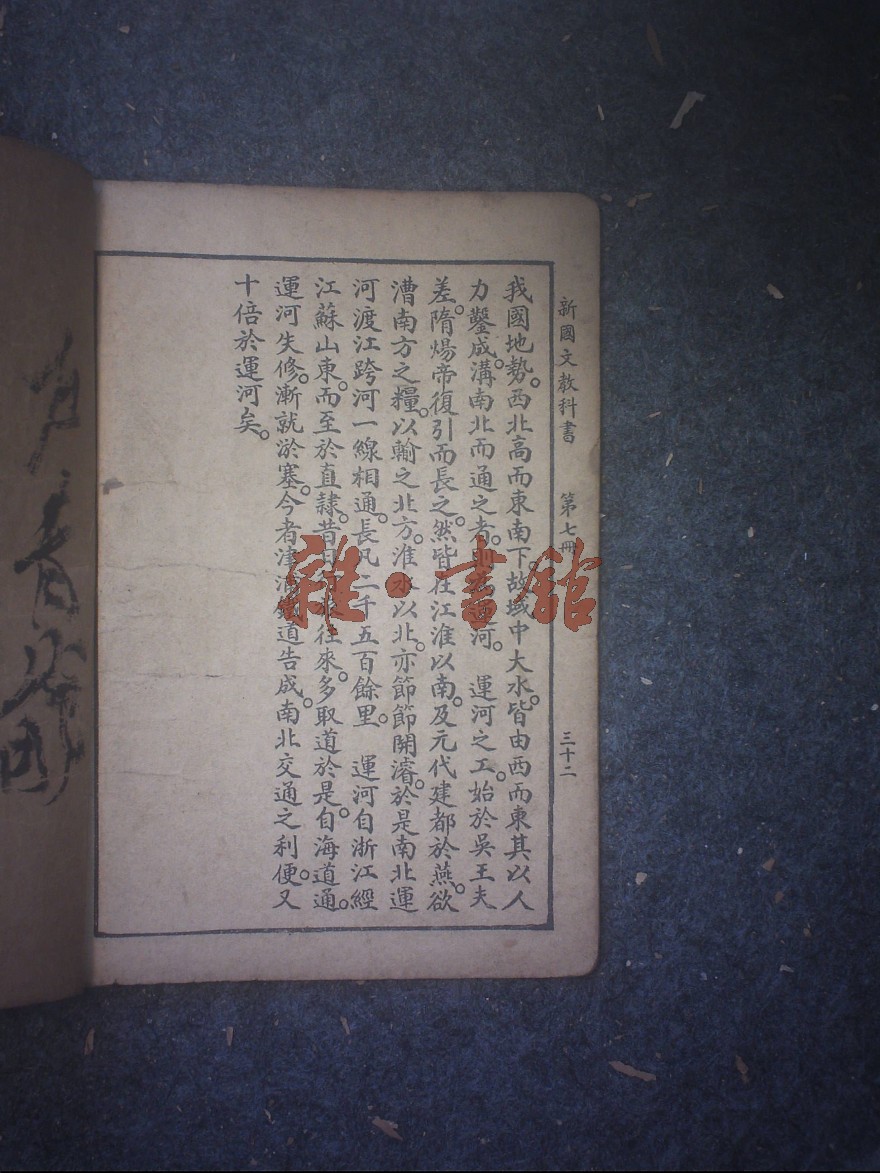 新國文教科書 第七冊 三十二
我國地勢。西北高而東南下故域中大水。皆由西而東其以人
力鑿成。溝南北而通之者。則為運河。 運河之工。始於吳王夫
差。隋煬帝復引而長之。然皆在江淮以南。及元代建都於燕。欲
漕南方之糧。以輸之北方。淮水以北。亦節節開濬。於是南北運
河渡江跨河一線相通。長凡二千五百餘里。 運河自浙江經
江蘇山東。而至於直隸。昔日往來。多取道於是。自海道通。
運河失修。漸就淤塞。今者津浦鐵道告成。南北交通之利便。又
十倍於運河矣。
雜·書館